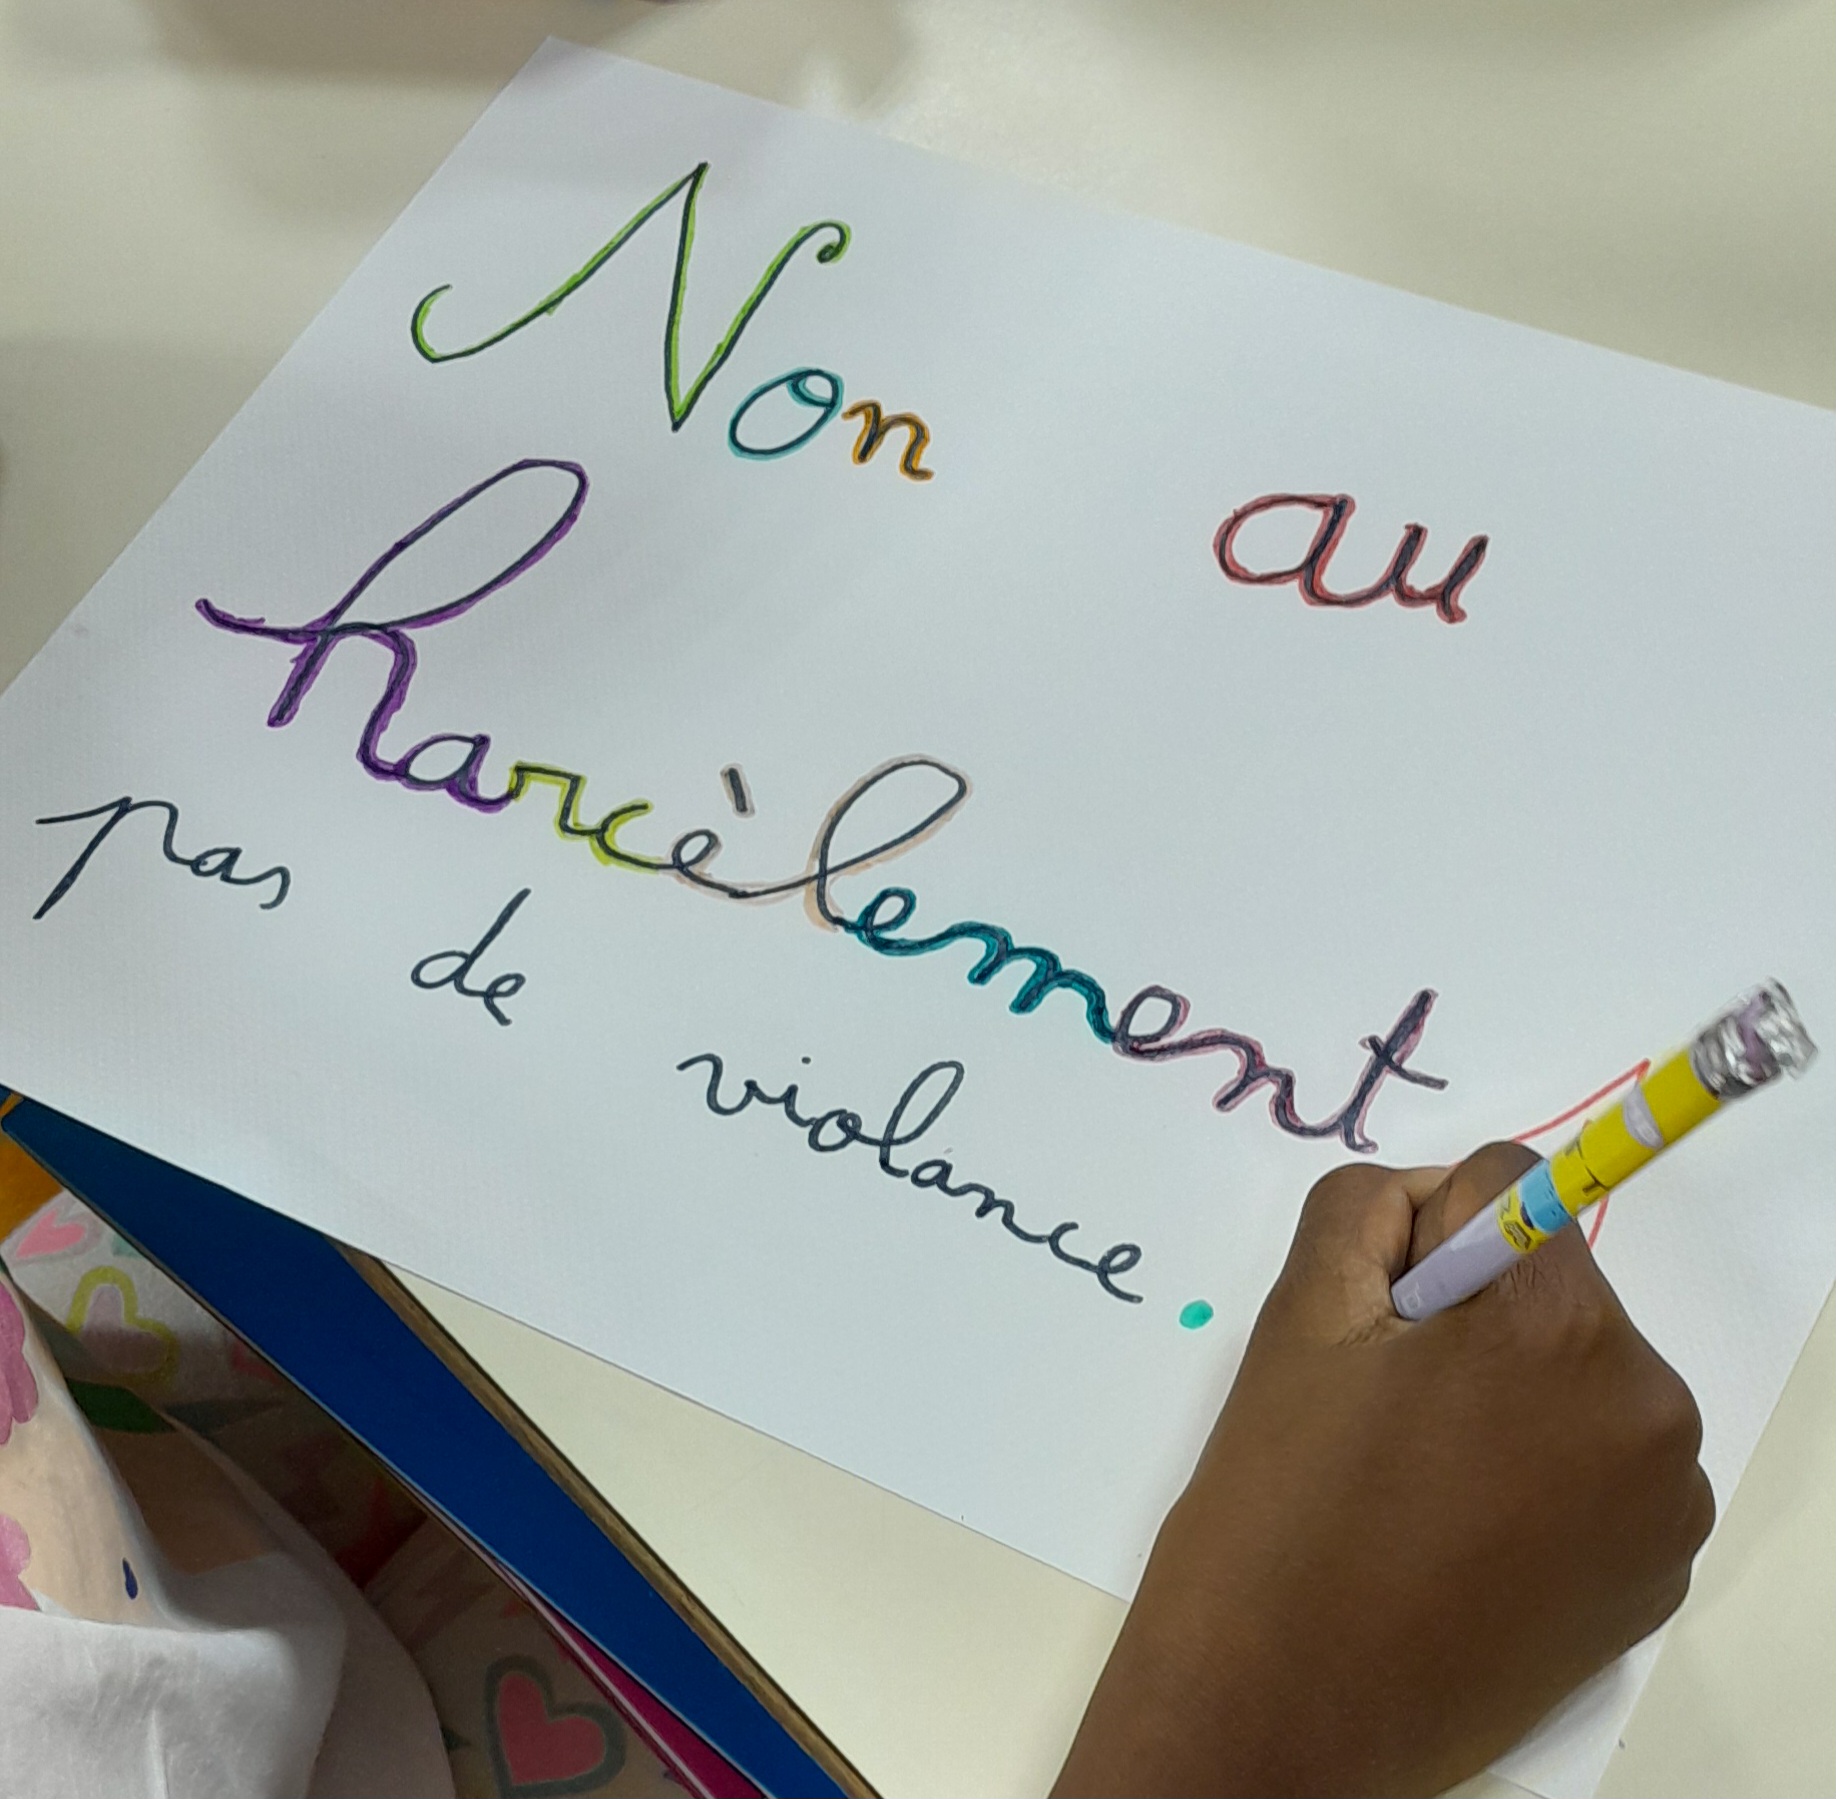 Non au
harcèlement
pas de violance.